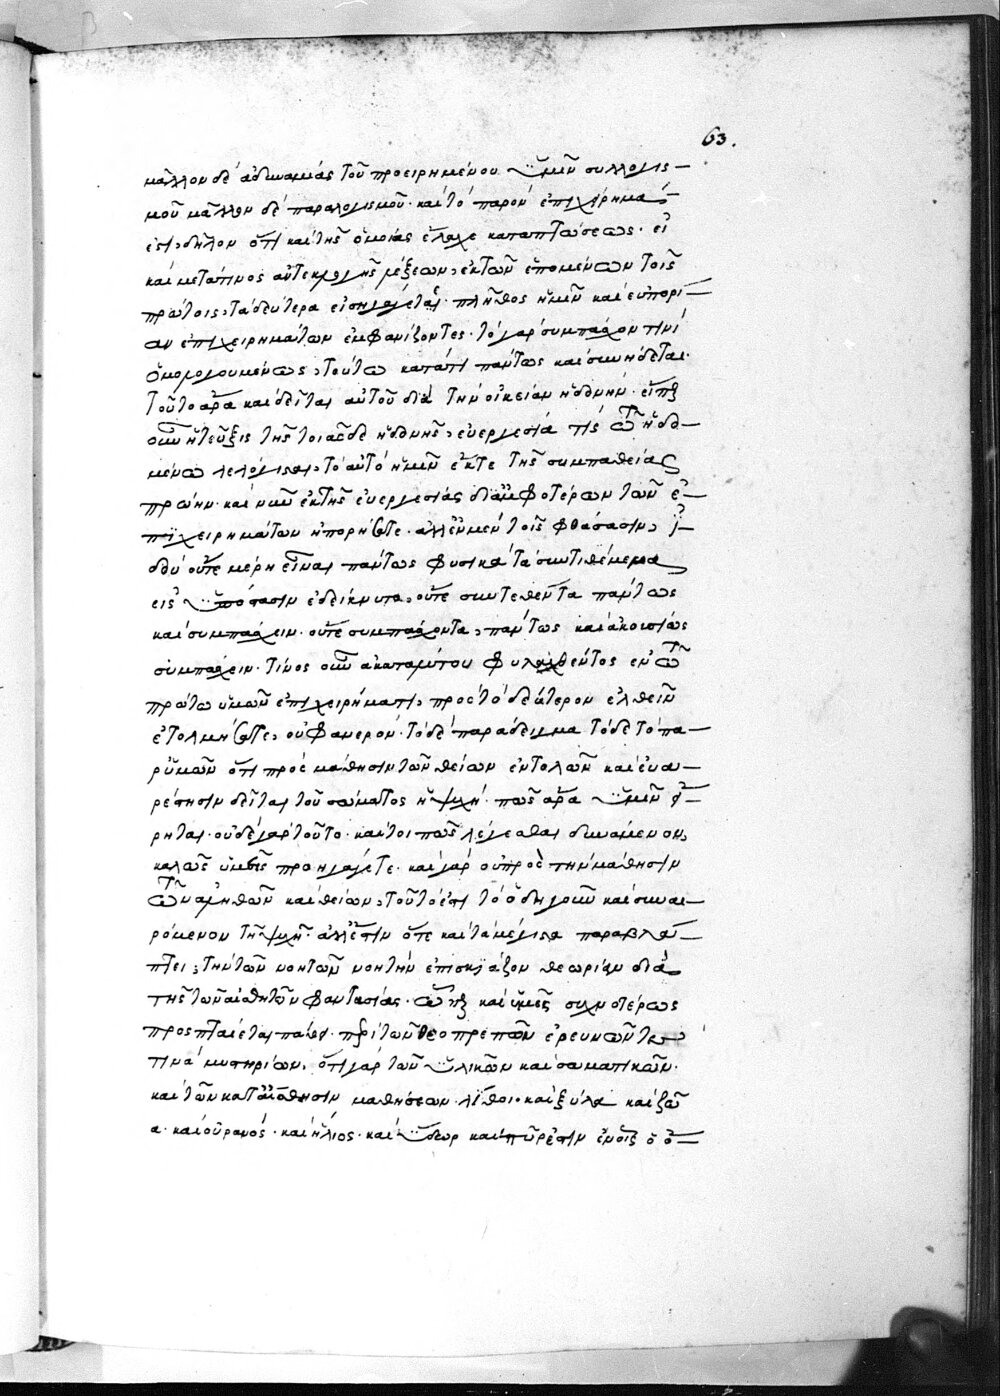 63.
μᾶλλον δὲ ἀδυναμίας τοῦ προειρημένου ὑμῖν συλλογισ-
μοῦ μᾶλλον δὲ παραλογισμοῦ· καὶ τὸ παρὸν ἐπιχείρημα
ἐστι, δῆλον ὅτι καὶ τῆς ὁμοίας ἔλαχε καταπτώσεως· εἰ
καὶ μετά τινος αὐτεκλογῆς λέξεων, ἐκ τῶν ἑπομένων τοῖς
πρώτοις, τὰ δεύτερα εἰσηγάγετε· πλῆθος ἡμῖν καὶ εὐπορί-
αν ἐπιχειρημάτων ἐμφανίζοντες· τὸ γὰρ συμπάσχον τινὶ
ὁμολογουμένως, τούτω κατά τι πάντως καὶ συνήδεται·
τοῦτο ἄρα καὶ δεῖται αὐτοῦ διὰ τὴν οἰκείαν ἡδονήν· εἴπερ
οὖν ἡ τεῦξις τῆς τοιᾶσδε ἡδονῆς, εὐεργεσία τίς τῶ ἡδο-
μένω λελόγισται, τὸ αὐτὸ ἡμῖν ἐκ τε τῆς συμπαθείας
πρώην· καὶ νῦν ἐκ τῆς εὐεργεσίας δι' ἀμφοτέρων τῶν ἐ-
πιχειρημάτων ἠπόρησθε· ἀλλ' ἐν μὲν τοῖς φθάσασιν, ἰ-
δοὺ οὔτε μέρη εἶναι πάντως φυσικὰ τὰ συντιθέμενα
εἰς ὑπόστασιν ἐδείκνυτο, οὔτε συντεθέντα πάντως
καὶ συμπάσχειν· οὔτε συμπάσχοντα, πάντως καὶ ἀκουσίως
συμπάσχειν· τίνος οὖν ἀκαταλύτου φυλαχθέντος ἐν τῶ
πρώτω ὑμῶν ἐπιχειρήματι, πρὸς τὸ δεύτερον ἐλθεῖν
ἐτολμήσατε, οὐ φανερόν· τὸ δὲ παράδειγμα τόδε τὸ πα-
ρ' ὑμῶν ὅτι πρὸς μάθησιν τῶν θείων ἐντολῶν καὶ εὐα-
ρέστησιν δεῖται τοῦ σώματος ἡ ψυχή· πῶς ἄρα ὑμῖν εἴ-
ρηται· οὐδὲ γὰρ τοῦτο· καίτοι πῶς λέγεσθαι δυνάμενον,
καλῶς ὑμεῖς προηγάγετε· καὶ γὰρ οὐ πρὸς τὴν μάθησιν
τῶν ἀληθῶν καὶ θείων, τοῦτό ἐστι τὸ ὁδηγοῦν καὶ συναι-
ρόμενον τῆ ψυχῆ· ἀλλ' ἔστιν ὅτε καὶ τὰ μέγιστα παραβλά-
πτει, τὴν τῶν νοητῶν νοητὴν ἐπισκιάζον θεωρίαν διὰ
τῆς τῶν αἰσθητῶν φαντασίας· ὧπερ καὶ ὑμεῖς συχνοτέρως
προσπταίεται περὶ τῶν θεοπρεπῶν ἐρευνῶντες
τινὰ μυστηρίων, ὅτι γὰρ τῶν ὑλικῶν καὶ σωματικῶν·
καὶ τῶν κατ' αἴσθησιν μαθήσεων· λίθοι· καὶ ξύλα καὶ ζῶ
α· καὶ οὐρανός· καὶ ἥλιος· καὶ ὕδωρ καὶ πῦρ ἐστὶν ἐν οἷς ὁ